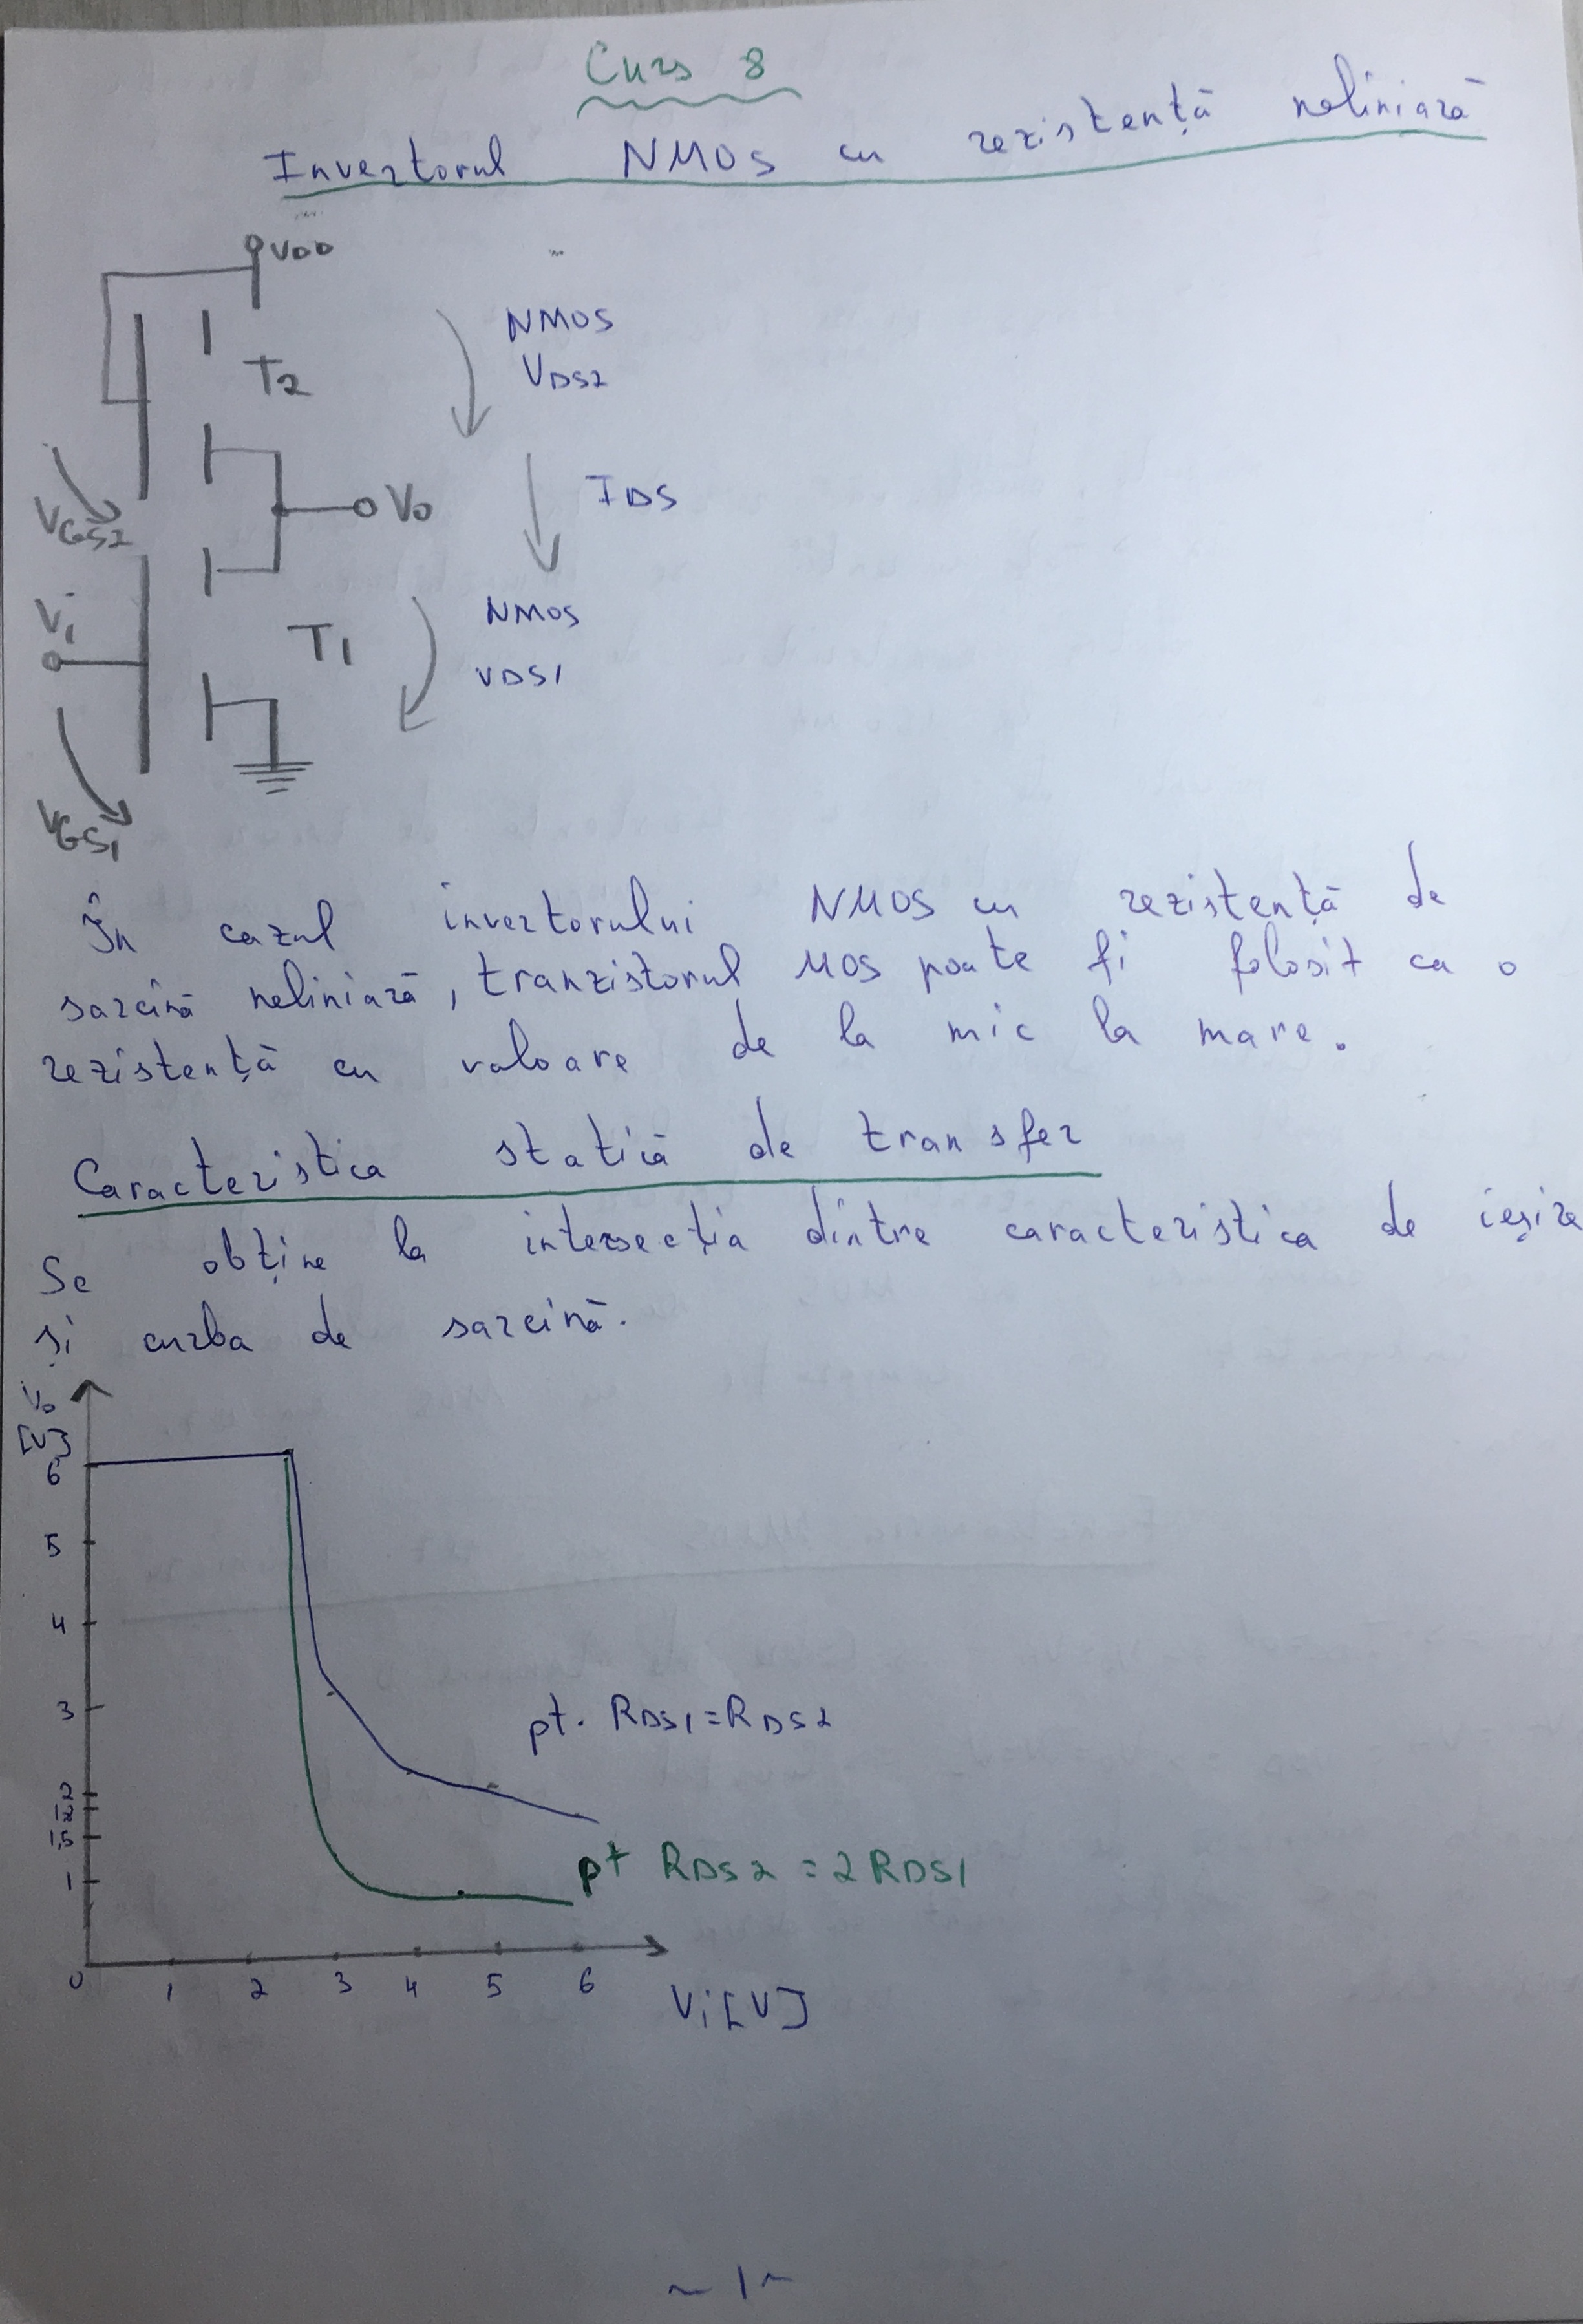 Curs 8
Invertorul NMOS cu rezistență neliniară
VDD
T2
NMOS
VDS2
VGS2
V0
IDS
Vi
T1
NMOS
VDS1
VGS1
În cazul invertorului NMOS cu rezistență de
sarcină neliniară, tranzistorul MOS poate fi folosit ca o
rezistență cu valoare de la mic la mare.
Caracteristica statică de transfer
Se obține la intersecția dintre caracteristica de ieșire
și curba de sarcină.
V0
[V]
6
5
4
3
2
1
pt. RDS1=RDS2
pt RDS2 = 2RDS1
0 1 2 3 4 5 6
Vi[V]
~1~